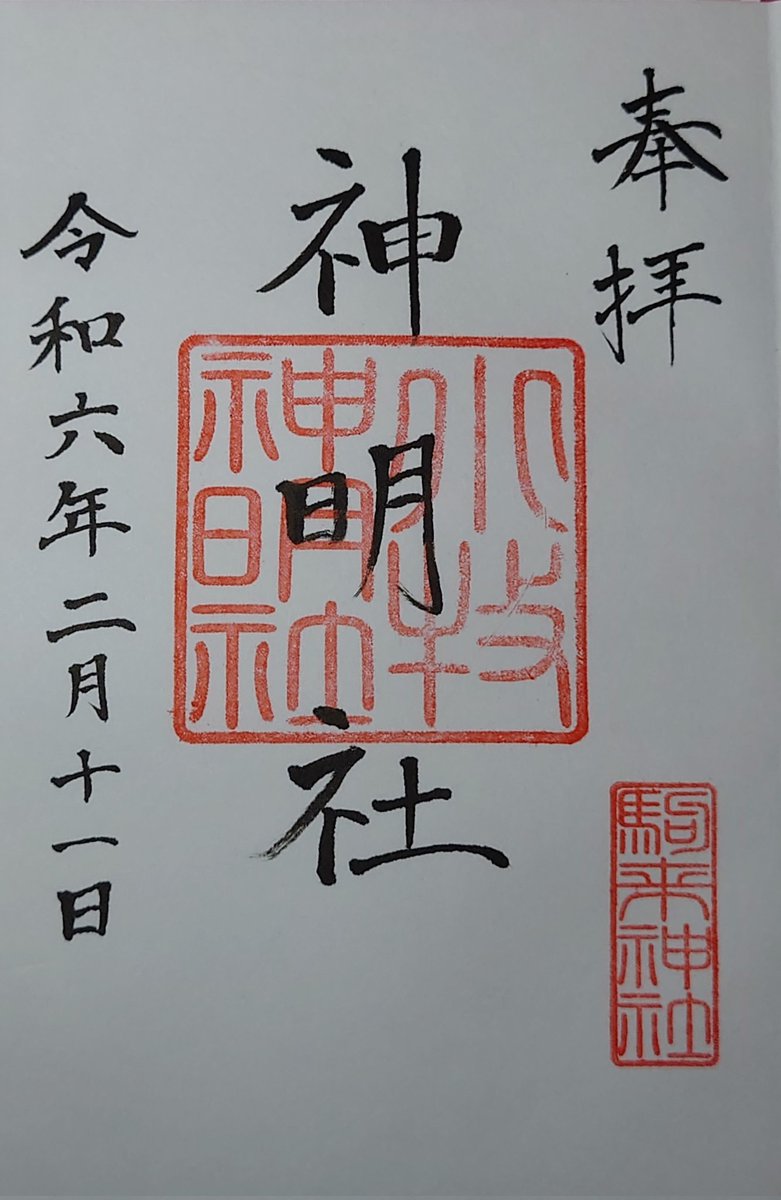 奉拝
神明社
令和六年二月十一日
小牧
神明社
駒来神社